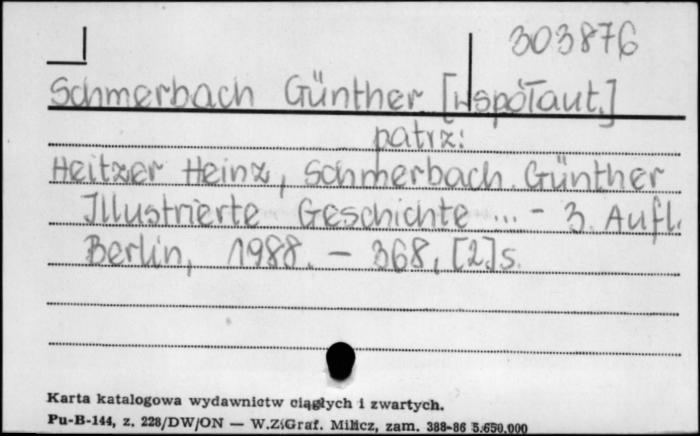 303876
Schmerbach Günther [współaut.]
patrz:
Heitzer Heinz, Schmerbach Günther
Illustrierte Geschichte ... - 3. Aufl.
Berlin, 1988. - 368, [2] s.
Karta katalogowa wydawnictw ciągłych i zwartych.
Pu-B-144, z. 228/DW/ON — W.Z.Graf. Milicz, zam. 388-86 5.650.000